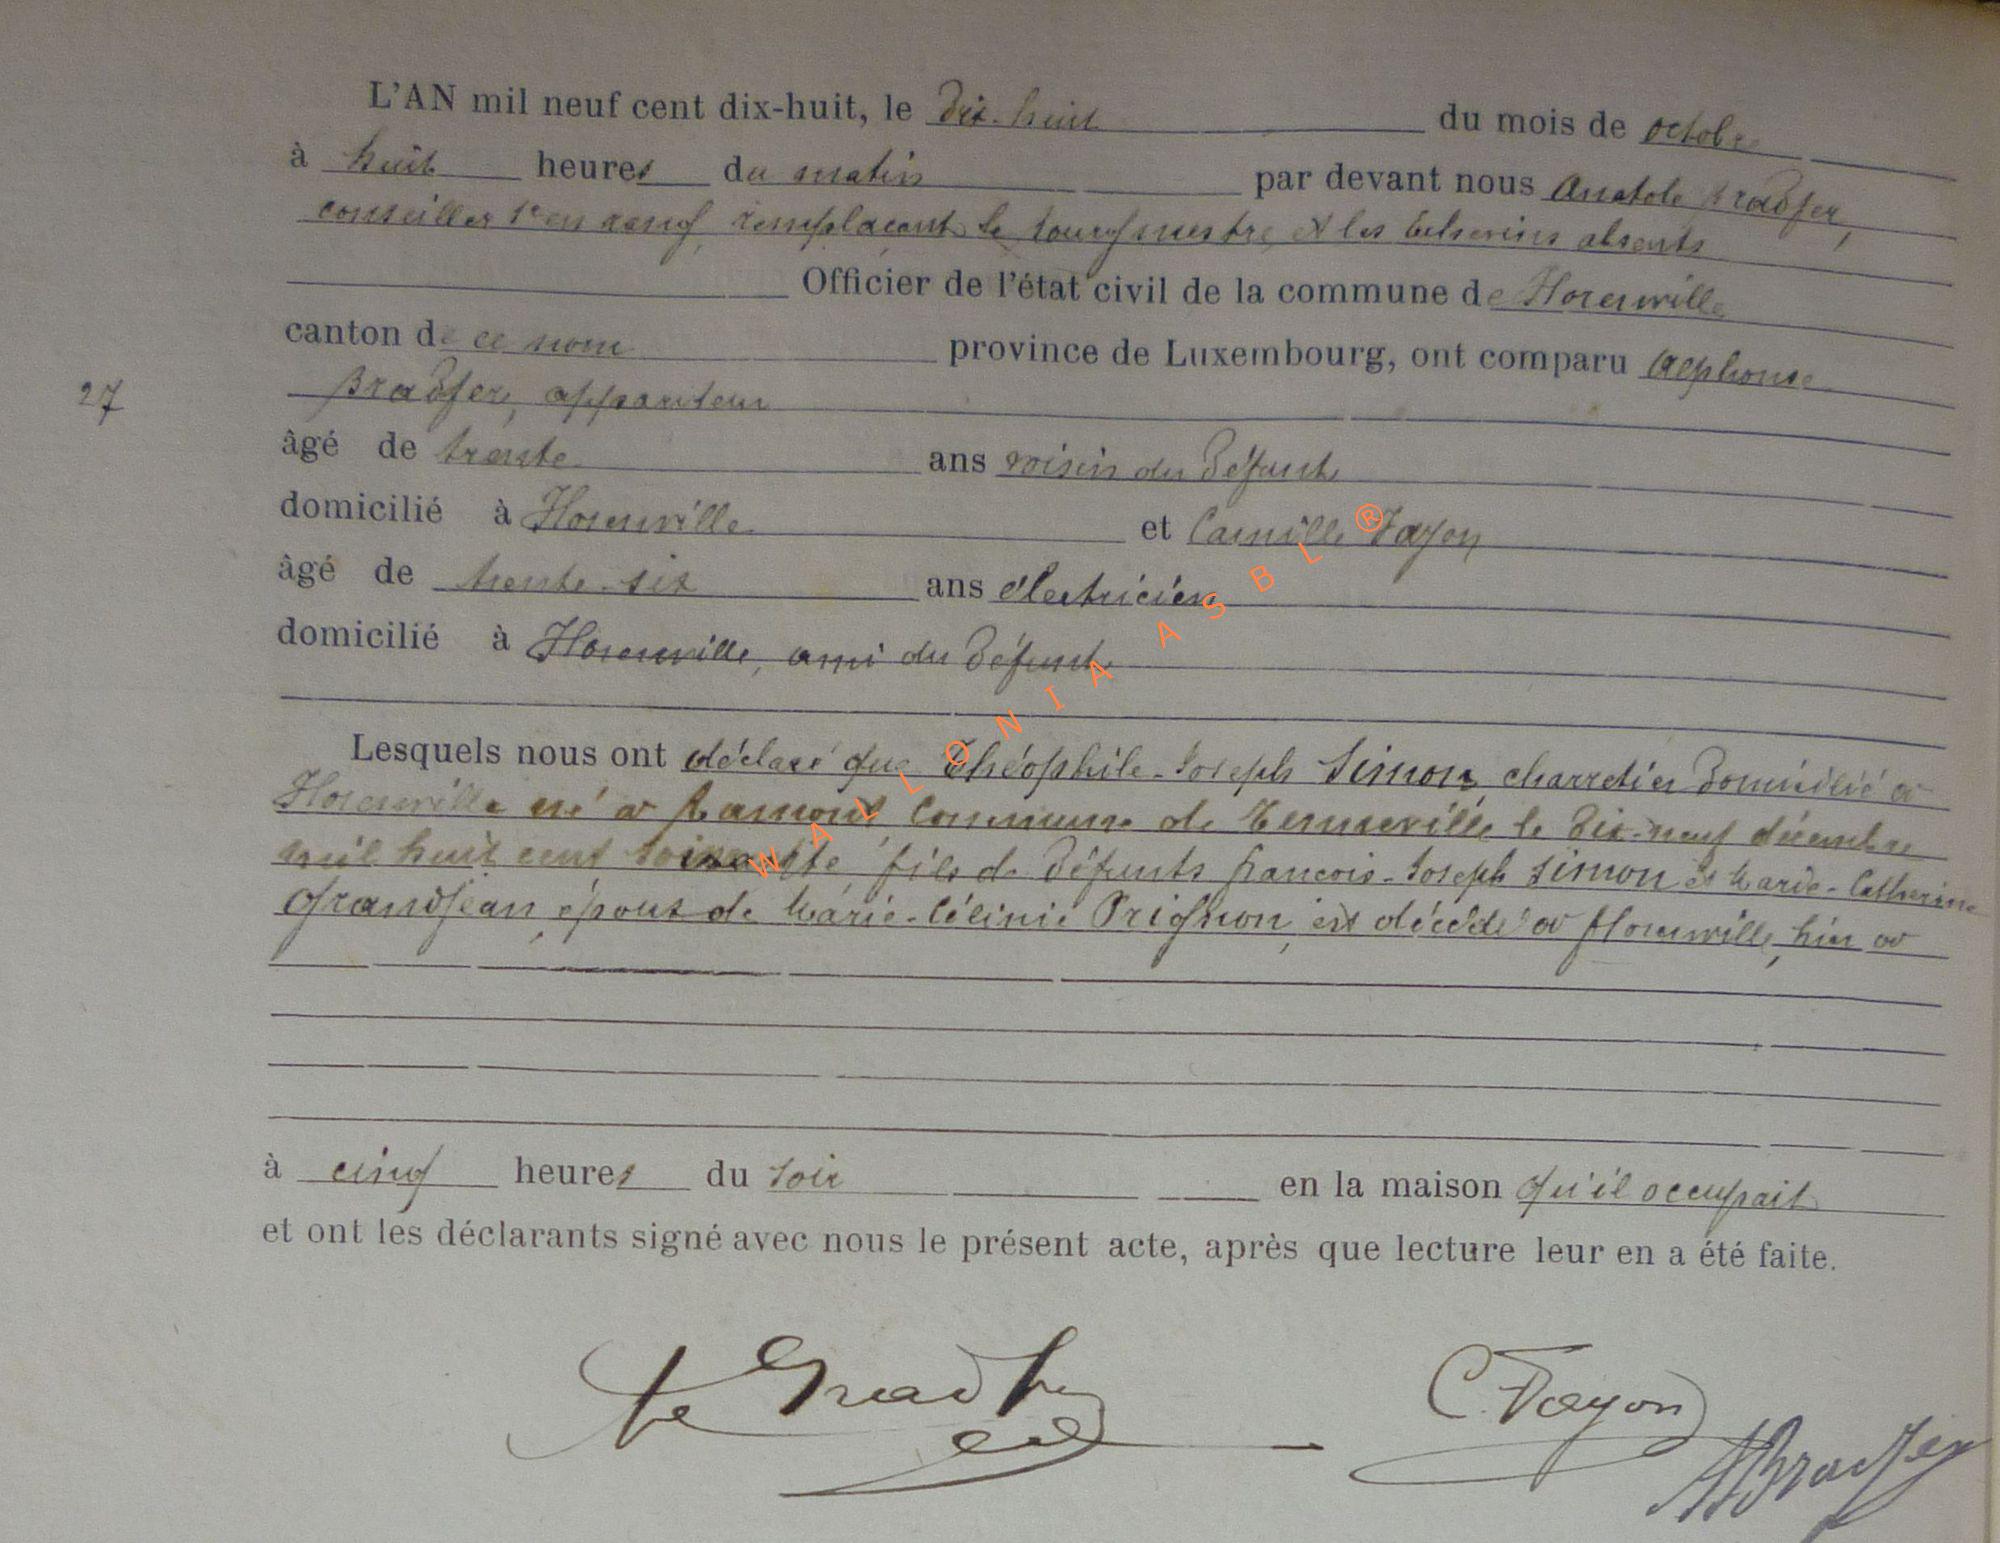 L'AN mil neuf cent dix-huit, le dix-huit du mois de octobre
à huit heures du matin par devant nous Anatole Bradfer,
conseiller 1er en rang, remplaçant le bourgmestre et les Echevins absents
Officier de l'état civil de la commune de Florenville
canton de ce nom province de Luxembourg, ont comparu Alphonse
27
Bradfer, appariteur
âgé de trente ans voisin du défunt
domicilié à Florenville et Camille Fayon
âgé de trente-six ans électricien
domicilié à Florenville, ami du défunt
Lesquels nous ont déclaré que Théophile-Joseph Simon, charretier domicilié à
Florenville né à Ramont Commune de Tenneville le dix-neuf décembre
mil huit cent soixante, fils de défunts François-Joseph Simon et Marie-Catherine
Grandjean, époux de Marie-Célinie Prignon, est décédé à Florenville, hier à
à cinq heures du soir en la maison qu'il occupait
et ont les déclarants signé avec nous le présent acte, après que lecture leur en a été faite.
C. Fayon
ABradfer
WALLONIA ASBL ®